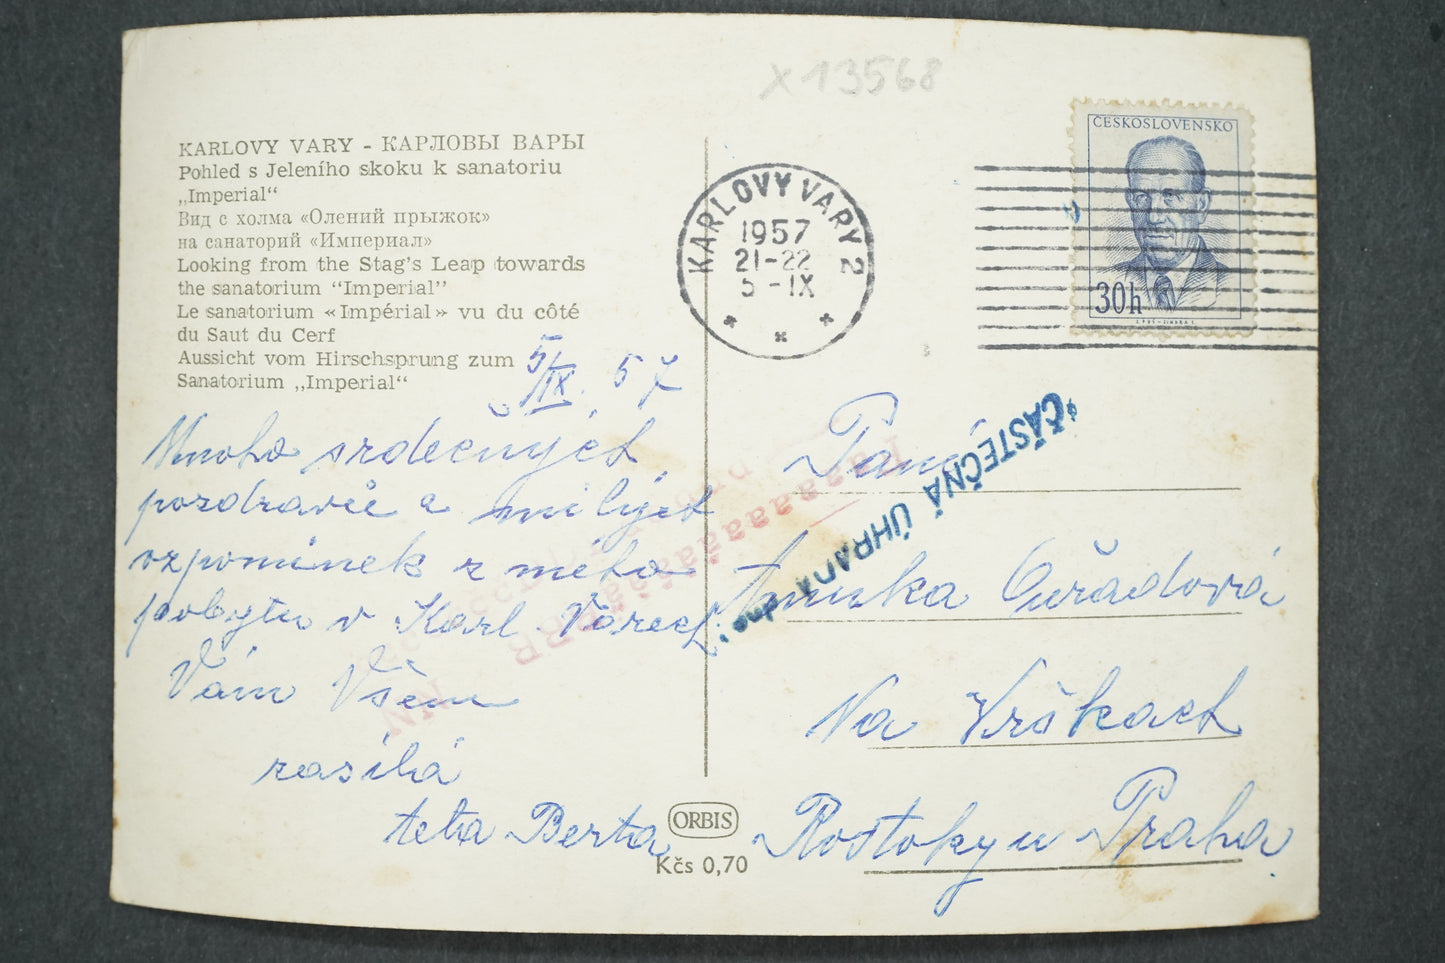 x 13568
KARLOVY VARY - КАРЛОВЫ ВАРЫ
Pohled s Jeleního skoku k sanatoriu
„Imperial“
Вид с холма «Олений прыжок»
на санаторий «Империал»
Looking from the Stag's Leap towards
the sanatorium "Imperial"
Le sanatorium «Impérial» vu du côté
du Saut du Cerf
Aussicht vom Hirschsprung zum
Sanatorium „Imperial“
5/IX. 57
Mnoho srdečných
pozdravů a milých
vzpomínek z mého
pobytu v Karl. Varech
Vám Všem
zasílá
teta Berta
ORBIS
Kčs 0,70
KARLOVY VARY 2
1957
21-22
5-IX
ČESKOSLOVENSKO
30h
ČÁSTEČNÁ ÚHRADA dne:
Paní
Anuška Čuřadová
Na Vrškach
Roztoky u Praha